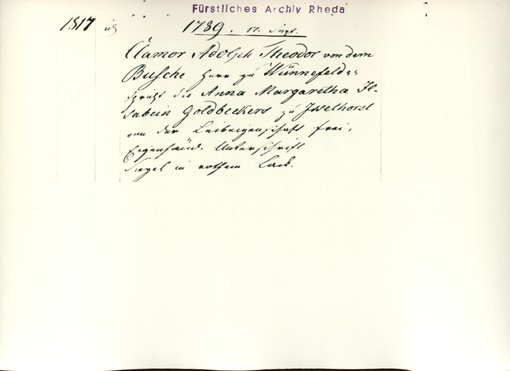 Fürstliches Archiv Rheda
1817 1789. 17. Sept.
Clamor Adolph Theodor von dem
Bussche Herr zu Hünnefeld,
spricht die Anna Margaretha Il-
sabein Goldbeckers zu Isselhorst
von der Leibeigenschaft frei,
Eigenhänd. Unterschrift
Siegel in rothem Lack.